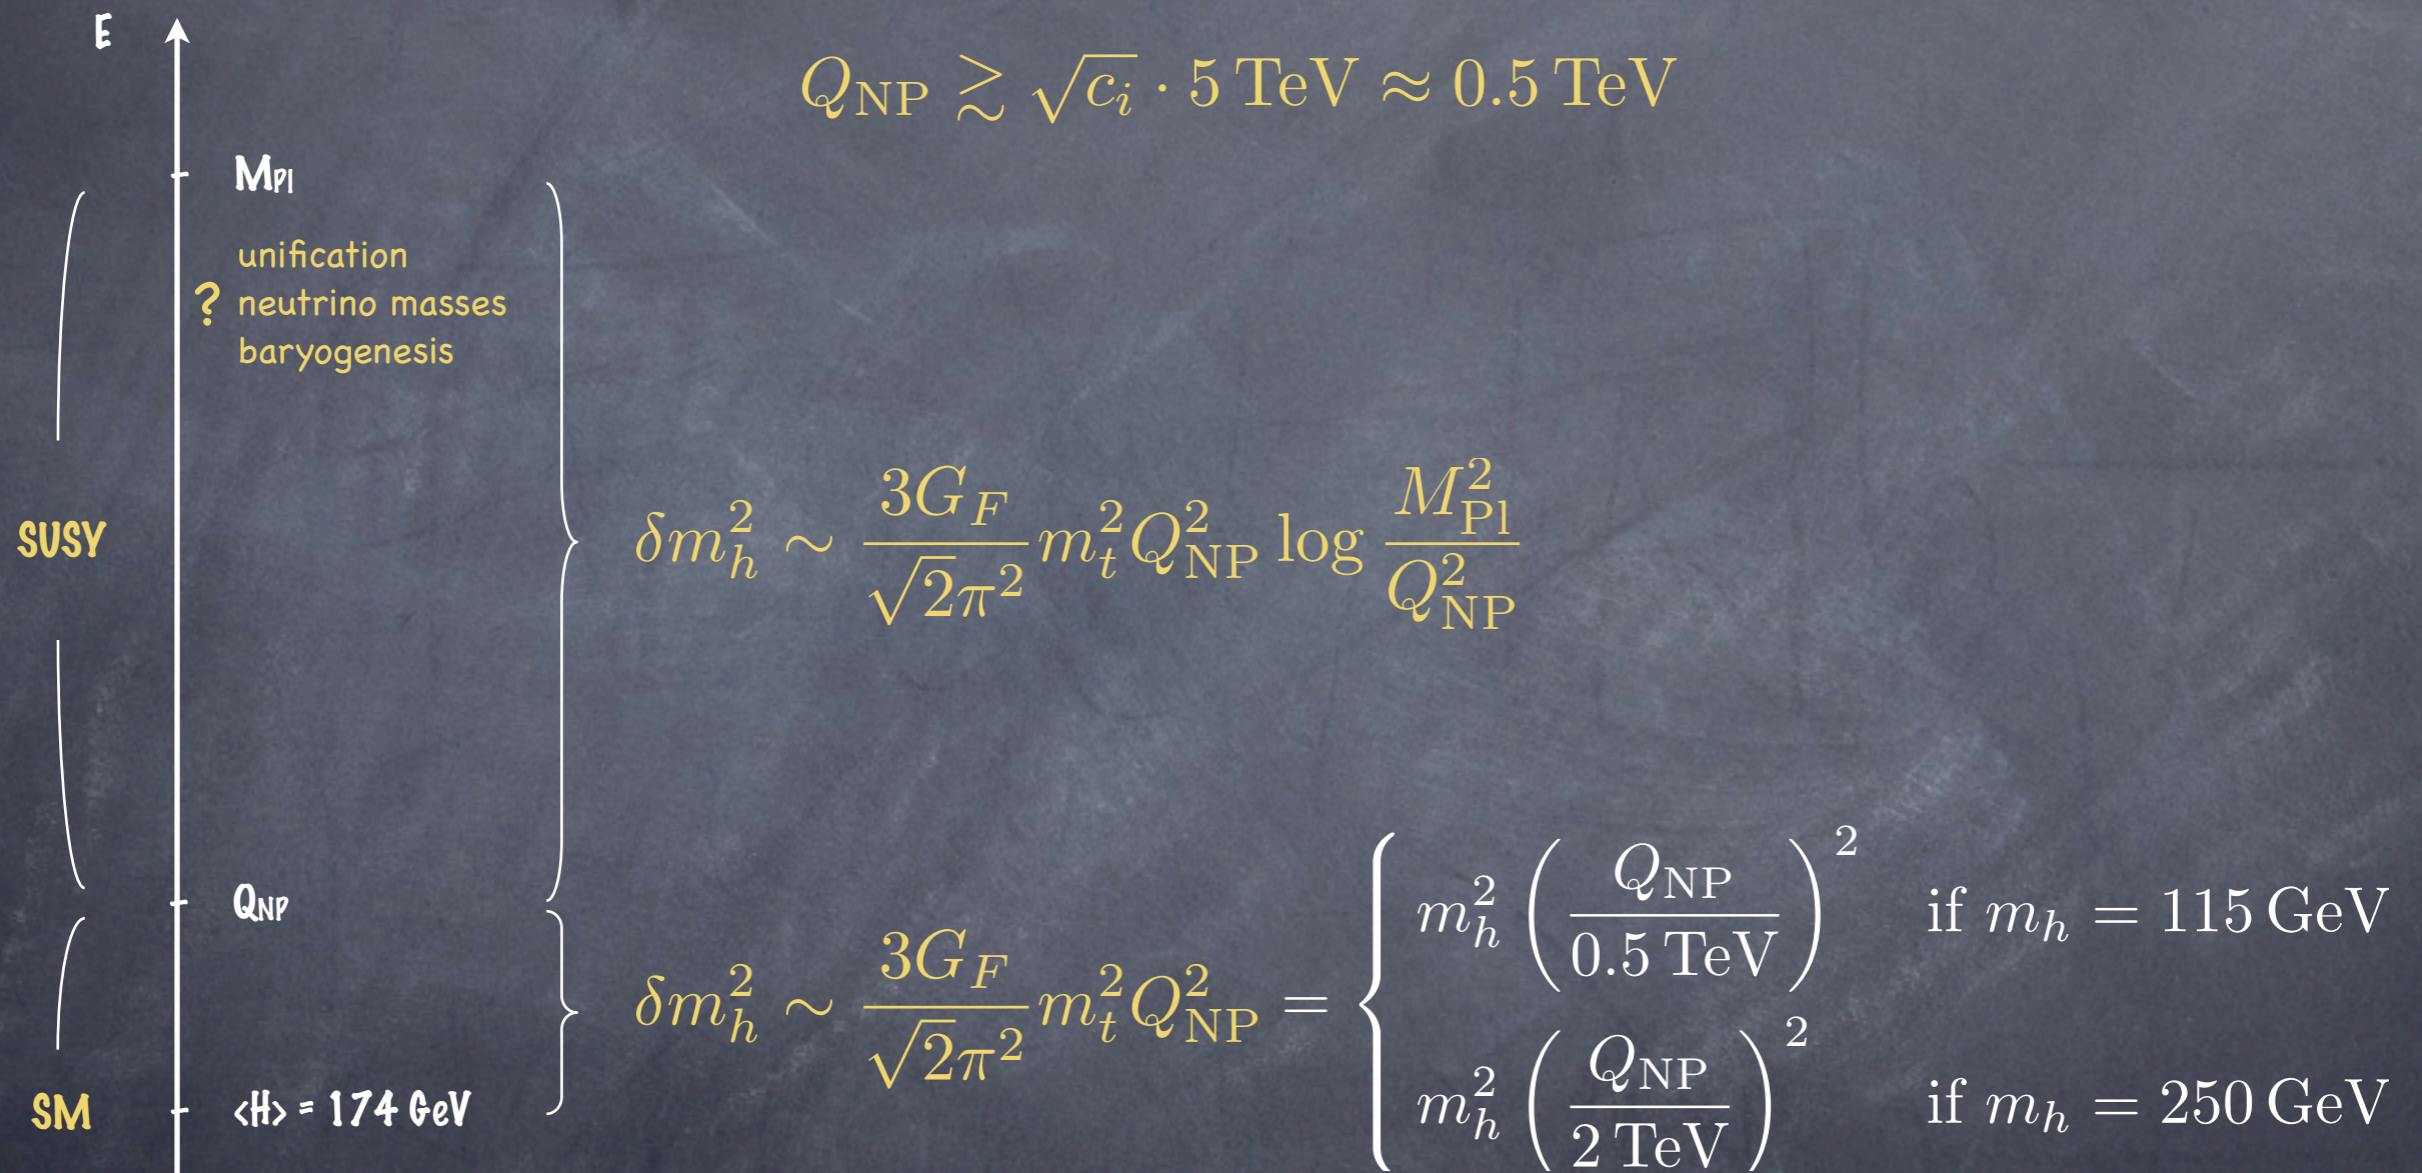 E
$Q_{\mathrm{NP}} \gtrsim \sqrt{c_i} \cdot 5\,\mathrm{TeV} \approx 0.5\,\mathrm{TeV}$
MPl
unification
? neutrino masses
baryogenesis
SUSY
$\delta m_h^2 \sim \frac{3G_F}{\sqrt{2}\pi^2} m_t^2 Q_{\mathrm{NP}}^2 \log \frac{M_{\mathrm{Pl}}^2}{Q_{\mathrm{NP}}^2}$
QNP
$\delta m_h^2 \sim \frac{3G_F}{\sqrt{2}\pi^2} m_t^2 Q_{\mathrm{NP}}^2 = \begin{cases} m_h^2 \left(\frac{Q_{\mathrm{NP}}}{0.5\,\mathrm{TeV}}\right)^2 & \text{if } m_h = 115\,\mathrm{GeV} \\ m_h^2 \left(\frac{Q_{\mathrm{NP}}}{2\,\mathrm{TeV}}\right)^2 & \text{if } m_h = 250\,\mathrm{GeV} \end{cases}$
SM
<H> = 174 GeV